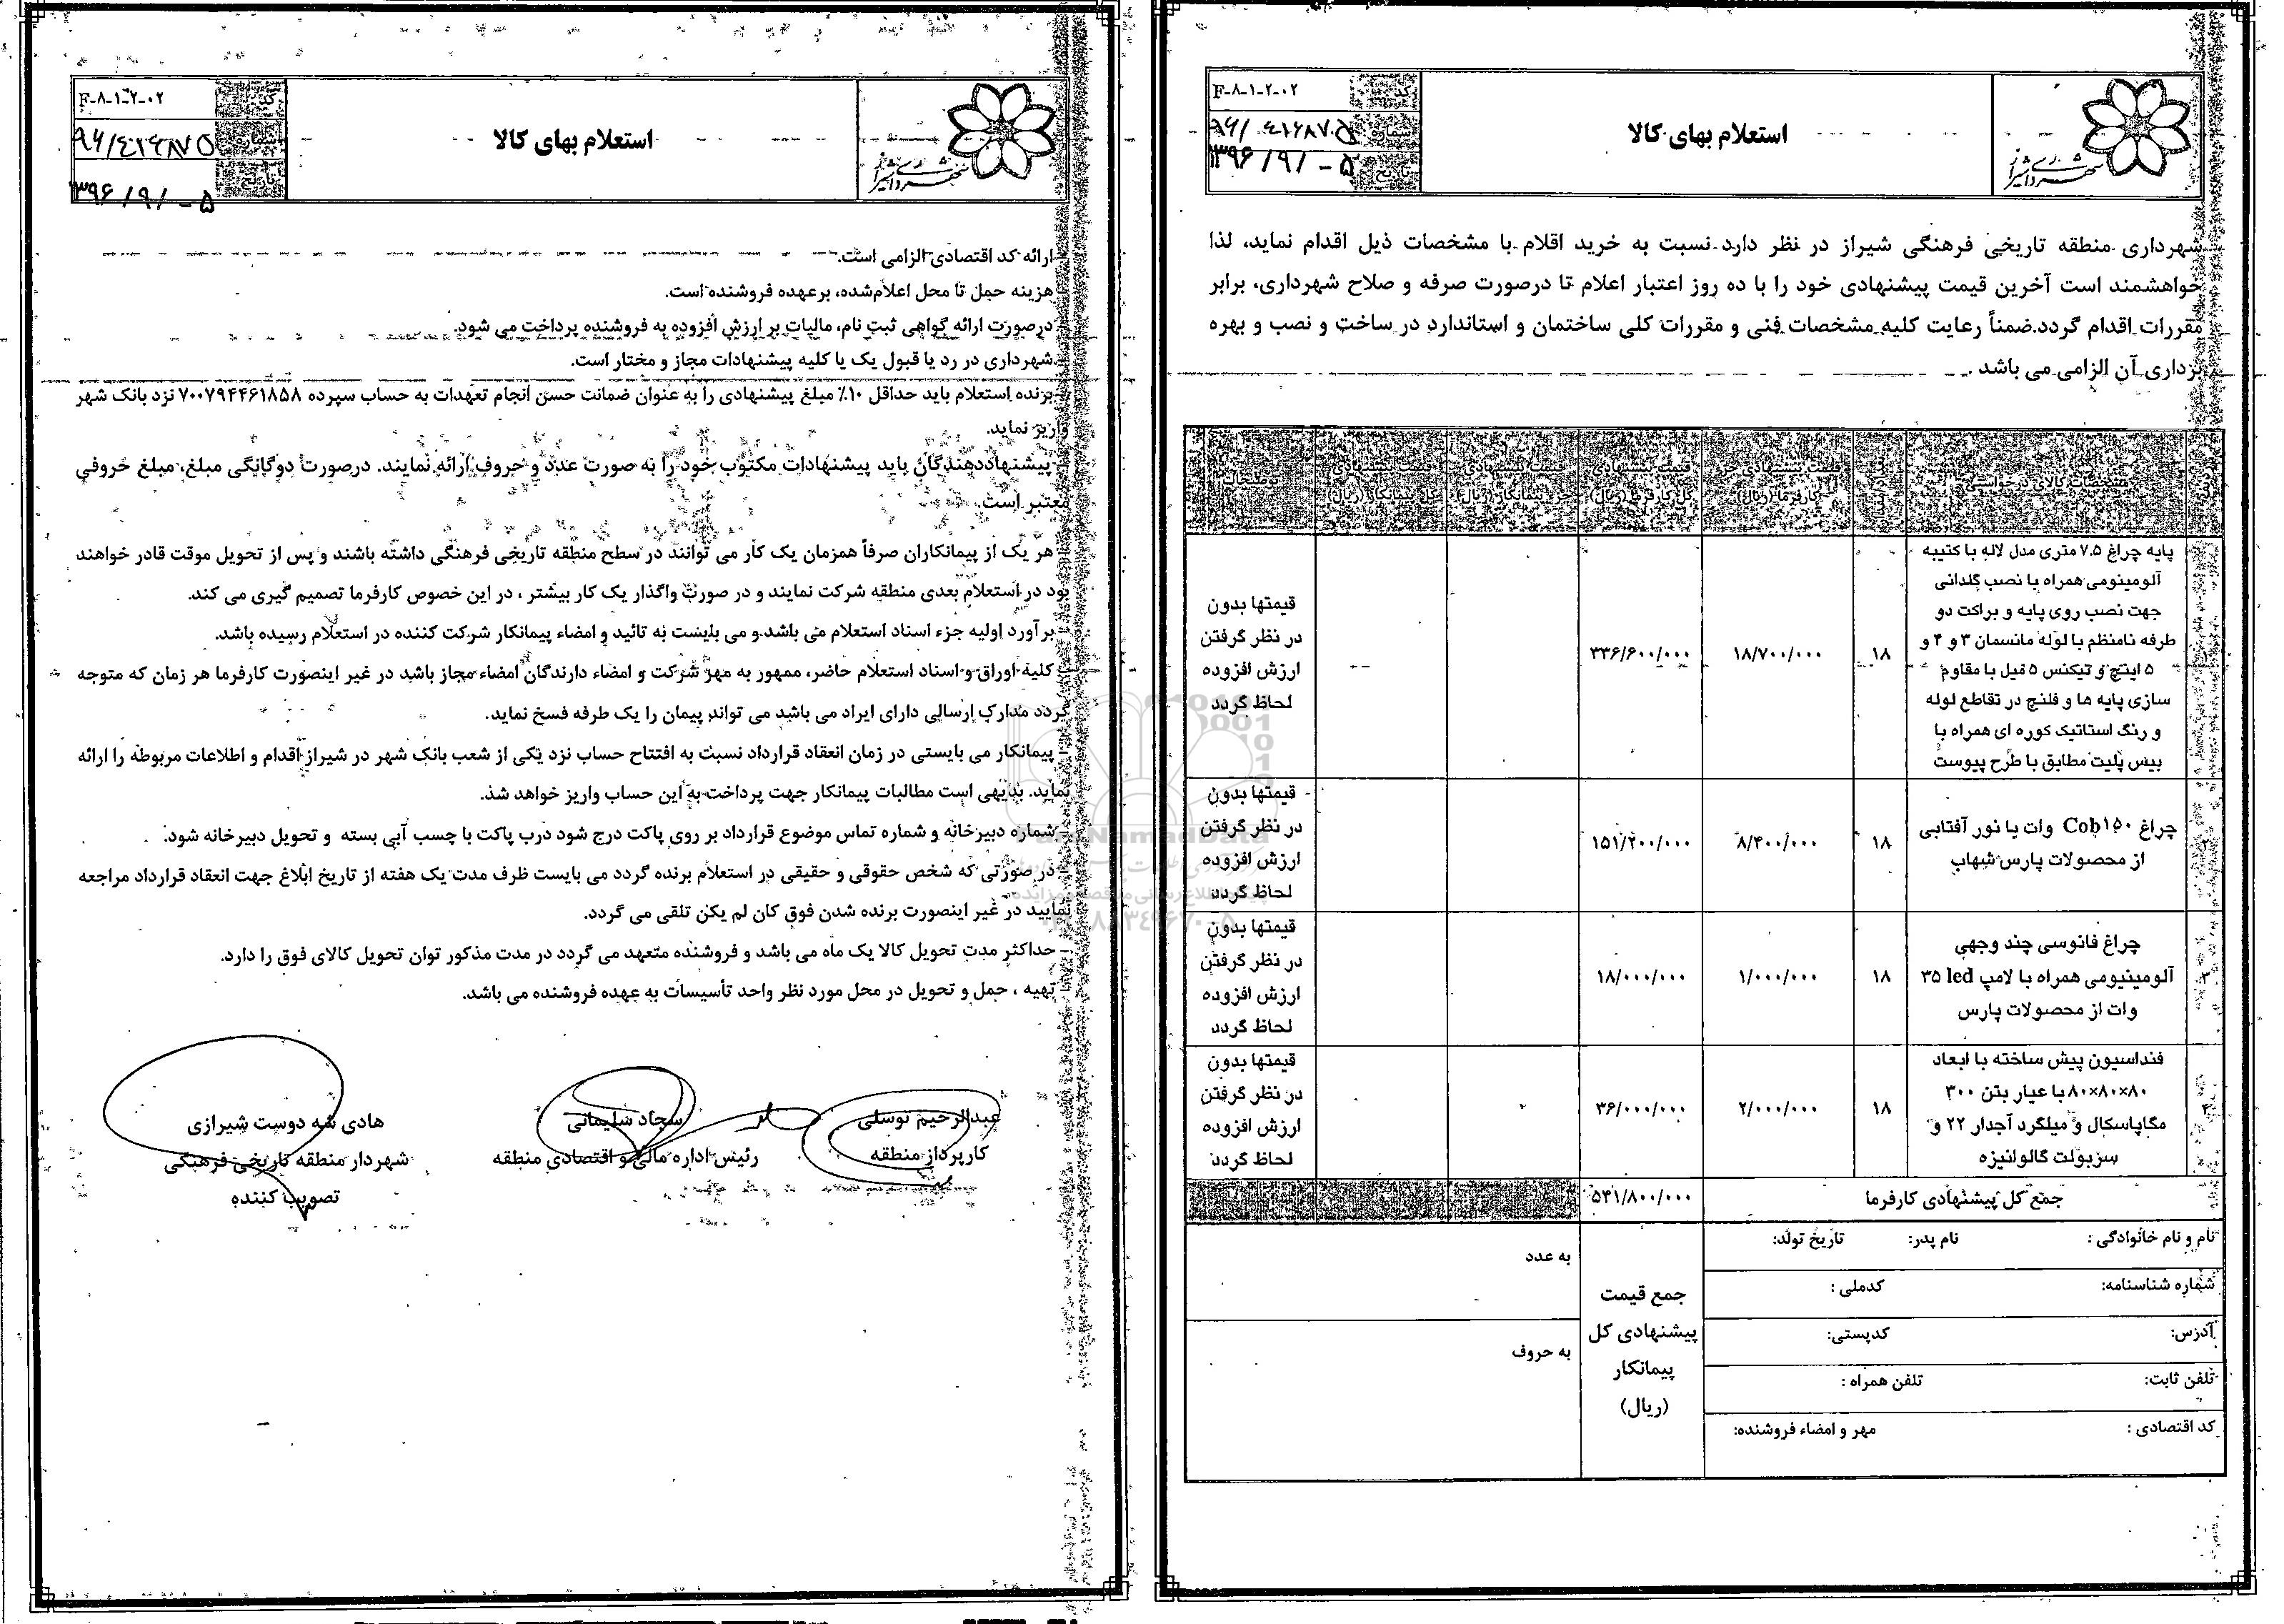 استعلام بهای کالا
کد
F-۸-۱-۲-۰۲
شماره
۹۶/۴۱۶۸۷۰۵
تاریخ
۱۳۹۶/۹/۰۵
شهرداری شیراز
شهرداری منطقه تاریخی فرهنگی شیراز در نظر دارد نسبت به خرید اقلام با مشخصات ذیل اقدام نماید، لذا
خواهشمند است آخرین قیمت پیشنهادی خود را با ده روز اعتبار اعلام تا درصورت صرفه و صلاح شهرداری، برابر
مقررات اقدام گردد.ضمناً رعایت کلیه مشخصات فنی و مقررات کلی ساختمان و استاندارد در ساخت و نصب و بهره
برداری آن الزامی می باشد .
مشخصات کالای درخواستی
قیمت پیشنهادی جزء کارفرما (ریال)
قیمت پیشنهادی کل کارفرما (ریال)
قیمت پیشنهادی جزء پیمانکار (ریال)
قیمت پیشنهادی کل پیمانکار (ریال)
توضیحات
پایه چراغ ۷.۵ متری مدل لاله با کتیبه
آلومینومی همراه با نصب گلدانی
جهت نصب روی پایه و براکت دو
طرفه نامنظم با لوله مانسمان ۳ و ۴ و
۵ اینچ و تیکنس ۵ میل با مقاوم
سازی پایه ها و فلنچ در تقاطع لوله
و رنگ استاتیک کوره ای همراه با
بیس پلیت مطابق با طرح پیوست
۱۸
۱۸/۷۰۰/۰۰۰
۳۳۶/۶۰۰/۰۰۰
قیمتها بدون
در نظر گرفتن
ارزش افزوده
لحاظ گردد
چراغ Cob۱۵۰ وات با نور آفتابی
از محصولات پارس شهاب
۱۸
۸/۴۰۰/۰۰۰
۱۵۱/۲۰۰/۰۰۰
قیمتها بدون
در نظر گرفتن
ارزش افزوده
لحاظ گردد
چراغ فانوسی چند وجهی
آلومینیومی همراه با لامپ led ۳۵
وات از محصولات پارس
۱۸
۱/۰۰۰/۰۰۰
۱۸/۰۰۰/۰۰۰
قیمتها بدون
در نظر گرفتن
ارزش افزوده
لحاظ گردد
فنداسیون پیش ساخته با ابعاد
۸۰×۸۰×۸۰ با عیار بتن ۳۰۰
مگاپاسکال و میلگرد آجدار ۲۲ و
سربولت گالوانیزه
۱۸
۲/۰۰۰/۰۰۰
۳۶/۰۰۰/۰۰۰
قیمتها بدون
در نظر گرفتن
ارزش افزوده
لحاظ گردد
جمع کل پیشنهادی کارفرما
۵۴۱/۸۰۰/۰۰۰
نام و نام خانوادگی : نام پدر: تاریخ تولد:
شماره شناسنامه: کدملی :
آدرس: کدپستی:
تلفن ثابت: تلفن همراه :
کد اقتصادی : مهر و امضاء فروشنده:
جمع قیمت
پیشنهادی کل
پیمانکار
(ریال)
به عدد
به حروف
استعلام بهای کالا
کد
F-۸-۱-۲-۰۲
شماره
۹۶/۴۱۶۸۷۰۵
تاریخ
۱۳۹۶/۹/۰۵
شهرداری شیراز
ارائه کد اقتصادی الزامی است.
هزینه حمل تا محل اعلام‌شده، برعهده فروشنده است.
درصورت ارائه گواهی ثبت نام، مالیات بر ارزش افزوده به فروشنده پرداخت می شود.
شهرداری در رد یا قبول یک یا کلیه پیشنهادات مجاز و مختار است.
برنده استعلام باید حداقل ۱۰٪ مبلغ پیشنهادی را به عنوان ضمانت حسن انجام تعهدات به حساب سپرده ۷۰۰۷۹۴۴۶۱۸۵۸ نزد بانک شهر
واریز نماید.
پیشنهاددهندگان باید پیشنهادات مکتوب خود را به صورت عدد و حروف ارائه نمایند. درصورت دوگانگی مبلغ، مبلغ حروفی
معتبر است.
هر یک از پیمانکاران صرفاً همزمان یک کار می توانند در سطح منطقه تاریخی فرهنگی داشته باشند و پس از تحویل موقت قادر خواهند
بود در استعلام بعدی منطقه شرکت نمایند و در صورت واگذار یک کار بیشتر ، در این خصوص کارفرما تصمیم گیری می کند.
برآورد اولیه جزء اسناد استعلام می باشد.و می بایست به تائید و امضاء پیمانکار شرکت کننده در استعلام رسیده باشد.
- کلیه اوراق و اسناد استعلام حاضر، ممهور به مهر شرکت و امضاء دارندگان امضاء مجاز باشد در غیر اینصورت کارفرما هر زمان که متوجه
گردد مدارک ارسالی دارای ایراد می باشد می تواند پیمان را یک طرفه فسخ نماید.
- پیمانکار می بایستی در زمان انعقاد قرارداد نسبت به افتتاح حساب نزد یکی از شعب بانک شهر در شیراز اقدام و اطلاعات مربوطه را ارائه
نماید. بدیهی است مطالبات پیمانکار جهت پرداخت به این حساب واریز خواهد شد.
- شماره دبیرخانه و شماره تماس موضوع قرارداد بر روی پاکت درج شود درب پاکت با چسب آبی بسته و تحویل دبیرخانه شود.
- در صورتی که شخص حقوقی و حقیقی در استعلام برنده گردد می بایست ظرف مدت یک هفته از تاریخ ابلاغ جهت انعقاد قرارداد مراجعه
نمایید در غیر اینصورت برنده شدن فوق کان لم یکن تلقی می گردد.
- حداکثر مدت تحویل کالا یک ماه می باشد و فروشنده متعهد می گردد در مدت مذکور توان تحویل کالای فوق را دارد.
تهیه ، حمل و تحویل در محل مورد نظر واحد تأسیسات به عهده فروشنده می باشد.
عبدالرحیم توسلی
کارپرداز منطقه
سجاد سلیمانی
رئیس اداره مالی و اقتصادی منطقه
هادی شه دوست شیرازی
شهردار منطقه تاریخی فرهنگی
تصویب کننده